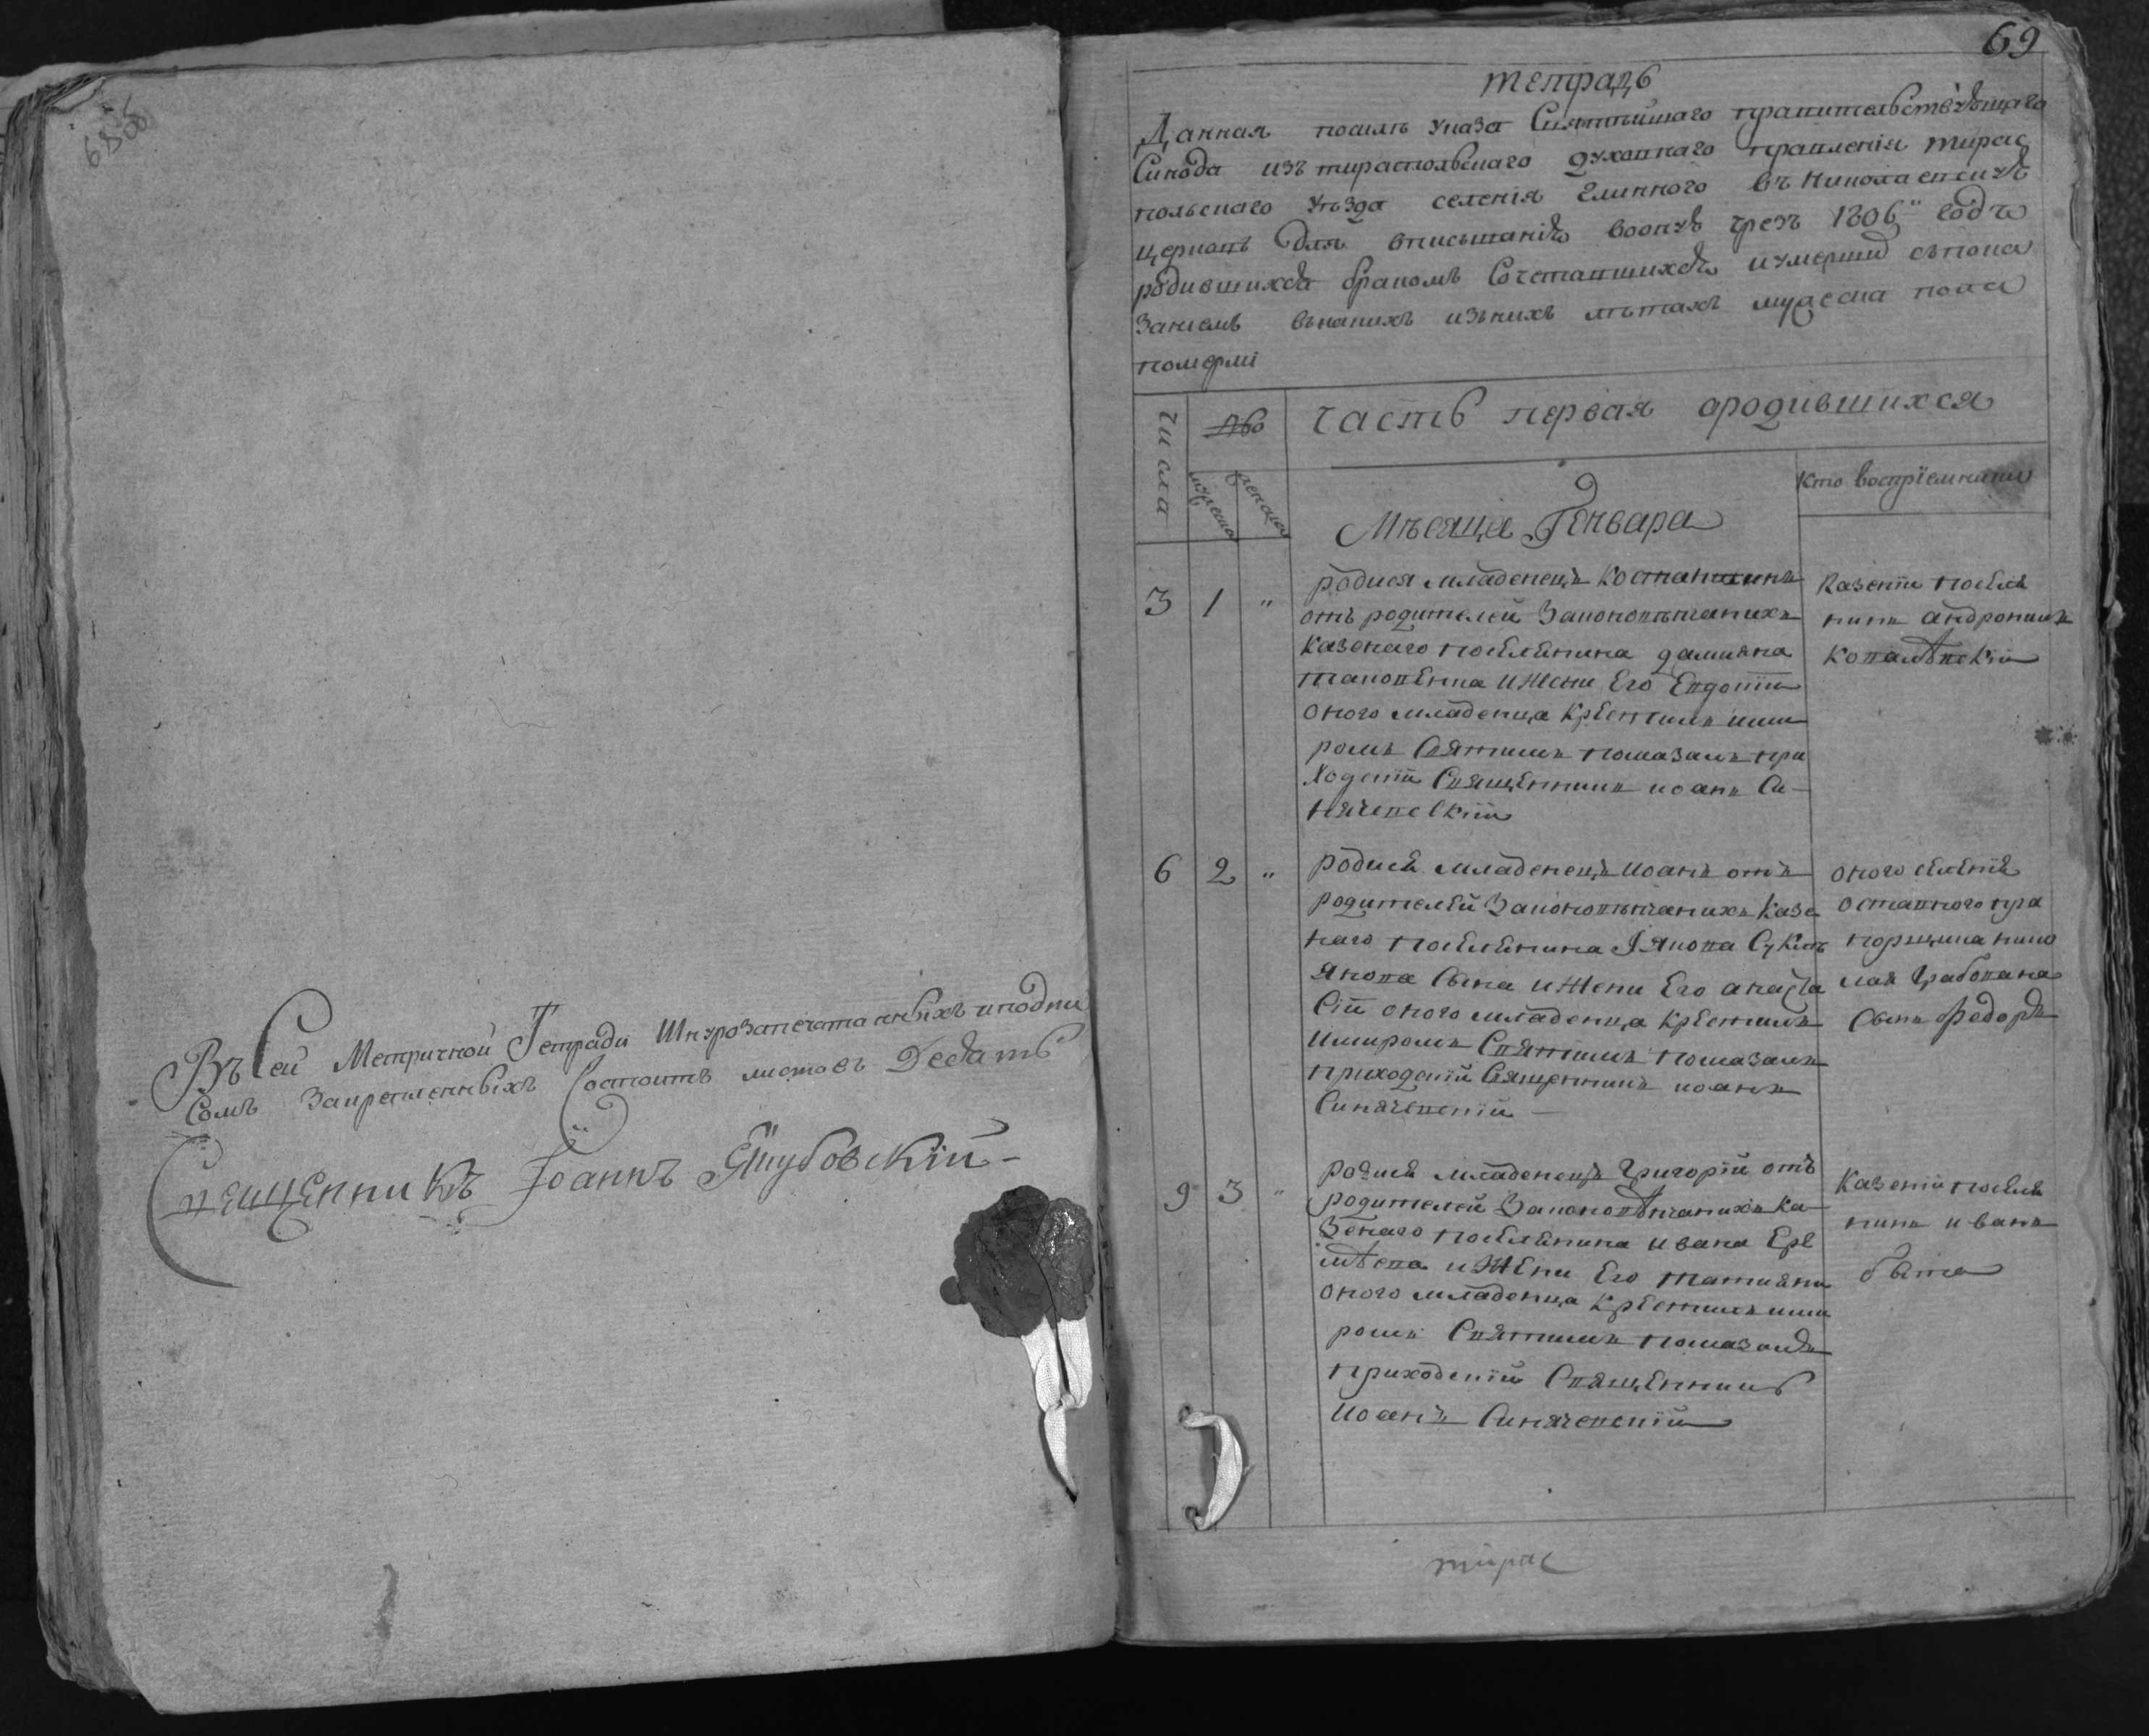 Въ Сей Метричной Тетради Шнурозапечатанныхъ иподпи
сомъ Закрепленныхъ Состоитъ листовъ Десать
Священникъ Іоаннъ Якубовскій
69
тетрадь
Данная посилѣ указа Святѣйшаго правительствующаго
Синода изъ тираспольскаго духовнаго правленія тирас
польскаго уѣзда селенія Глинного въ Николаевскую
церковь для вписыванія вооную чрезъ 1806" годъ
родившихся бракомъ Сочетавшихся иумерши съпока
заніемъ вькакихъ изьнихъ лѣтахъ мужеска пола
померли
числа
мужеска
женска
часть первая ородившихся
Мѣсяца Генвара
кто воспріемники
3 1 "
родися младенецъ Костантинъ
отъ родителей Законовѣнчанихъ
казенаго поселенина дамияна
ижени Его Евдокіи
оного младенца крестилъ ими
ромъ Святимъ помазалъ при
ходскій Священникъ иоанъ Си
нячевскій
казеній поселя
нинъ андроникъ
6 2 "
родися младенецъ иоанъ отъ
родителей Законовѣнчанихъ казе
наго поселенина
сына ижени Его анаста
сіи оного младенца крестилъ
имиромъ Святимъ помазалъ
приходскій Священникъ иоанъ
Синячевскій
оного селенія
оставного пра
порщика нико
лая Грабована
Сынъ Федоръ
9 3 "
родися младенецъ Григорій отъ
родителей Законовѣнчанихъ ка
зенаго поселенина ивана Ере
ижени Его татияни
оного младенца крестилъ ими
ромъ Святимъ помазалъ
приходскій Священникъ
иоанъ Синячевскій
казеній поселя
нинъ иванъ
тирас